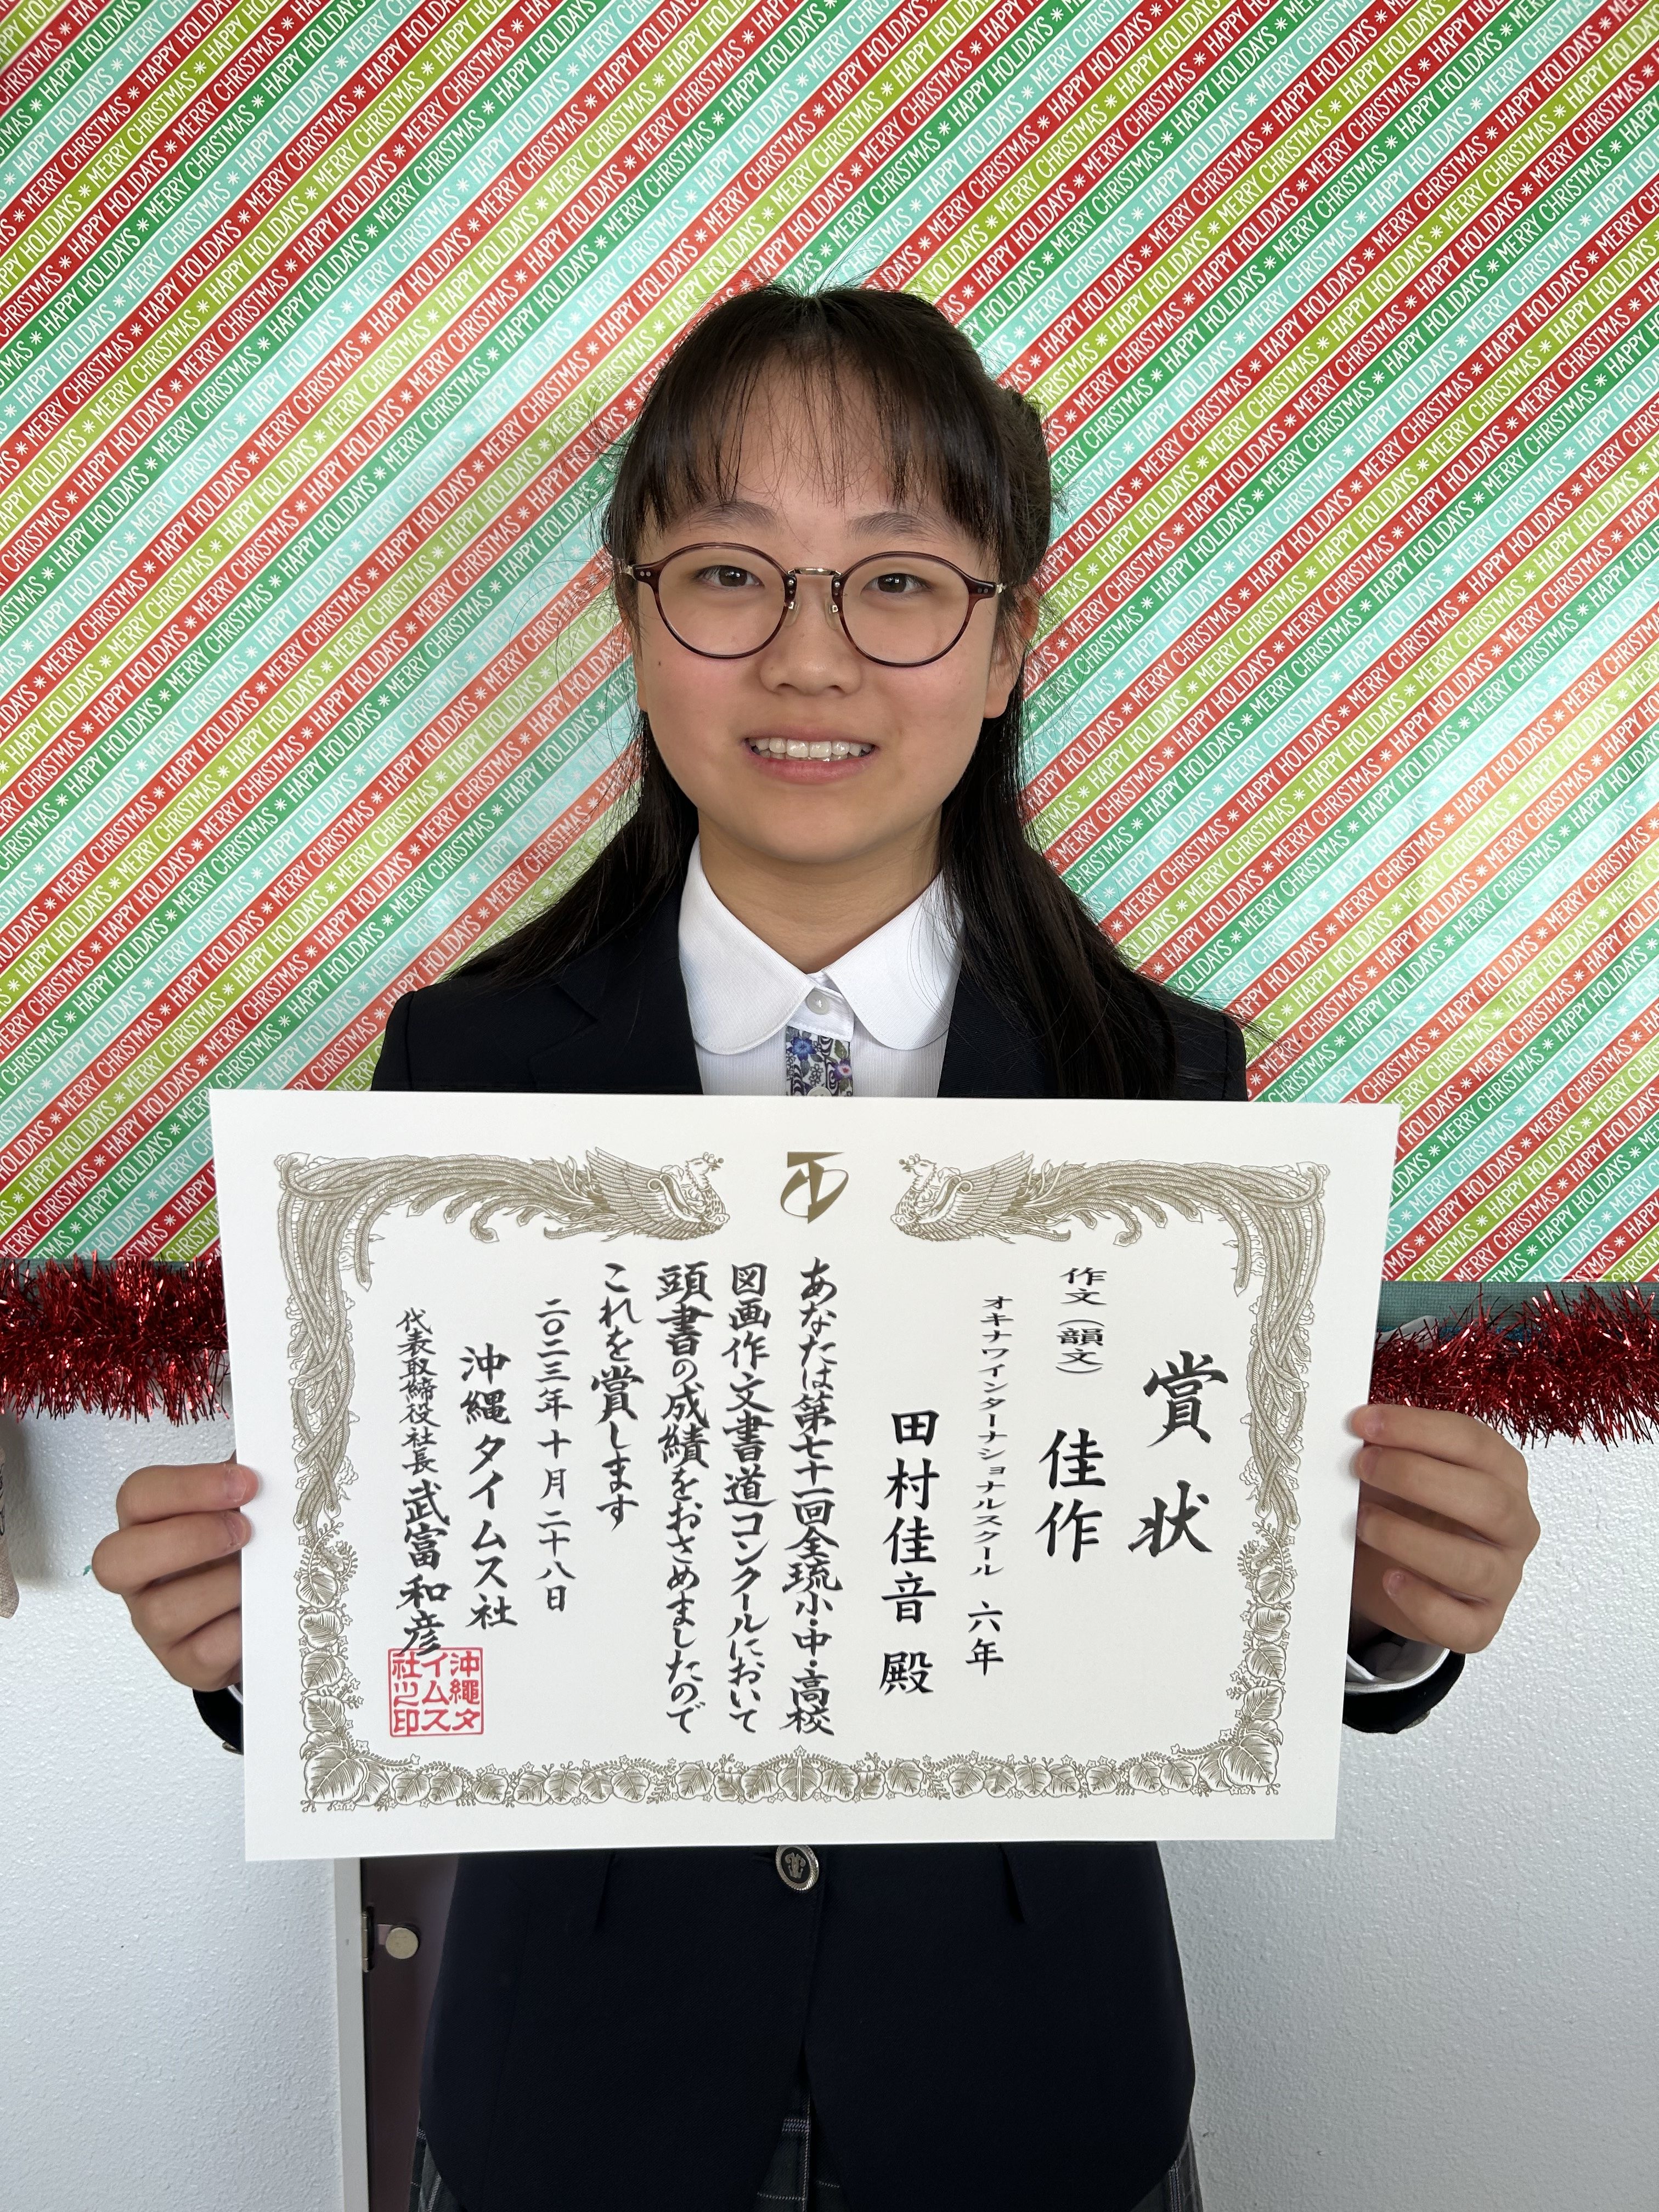 MERRY CHRISTMAS * HAPPY HOLIDAYS * MERRY CHRISTMAS * HAPPY HOLIDAYS
賞状
作文（韻文）　佳作
オキナワインターナショナルスクール　六年
田村佳音　殿
あなたは第七十一回全琉小・中・高校
図画作文書道コンクールにおいて
頭書の成績をおさめましたので
これを賞します
二〇二三年十月二十八日
沖縄タイムス社
代表取締役社長　武富和彦
沖縄タ
イムス
社之印